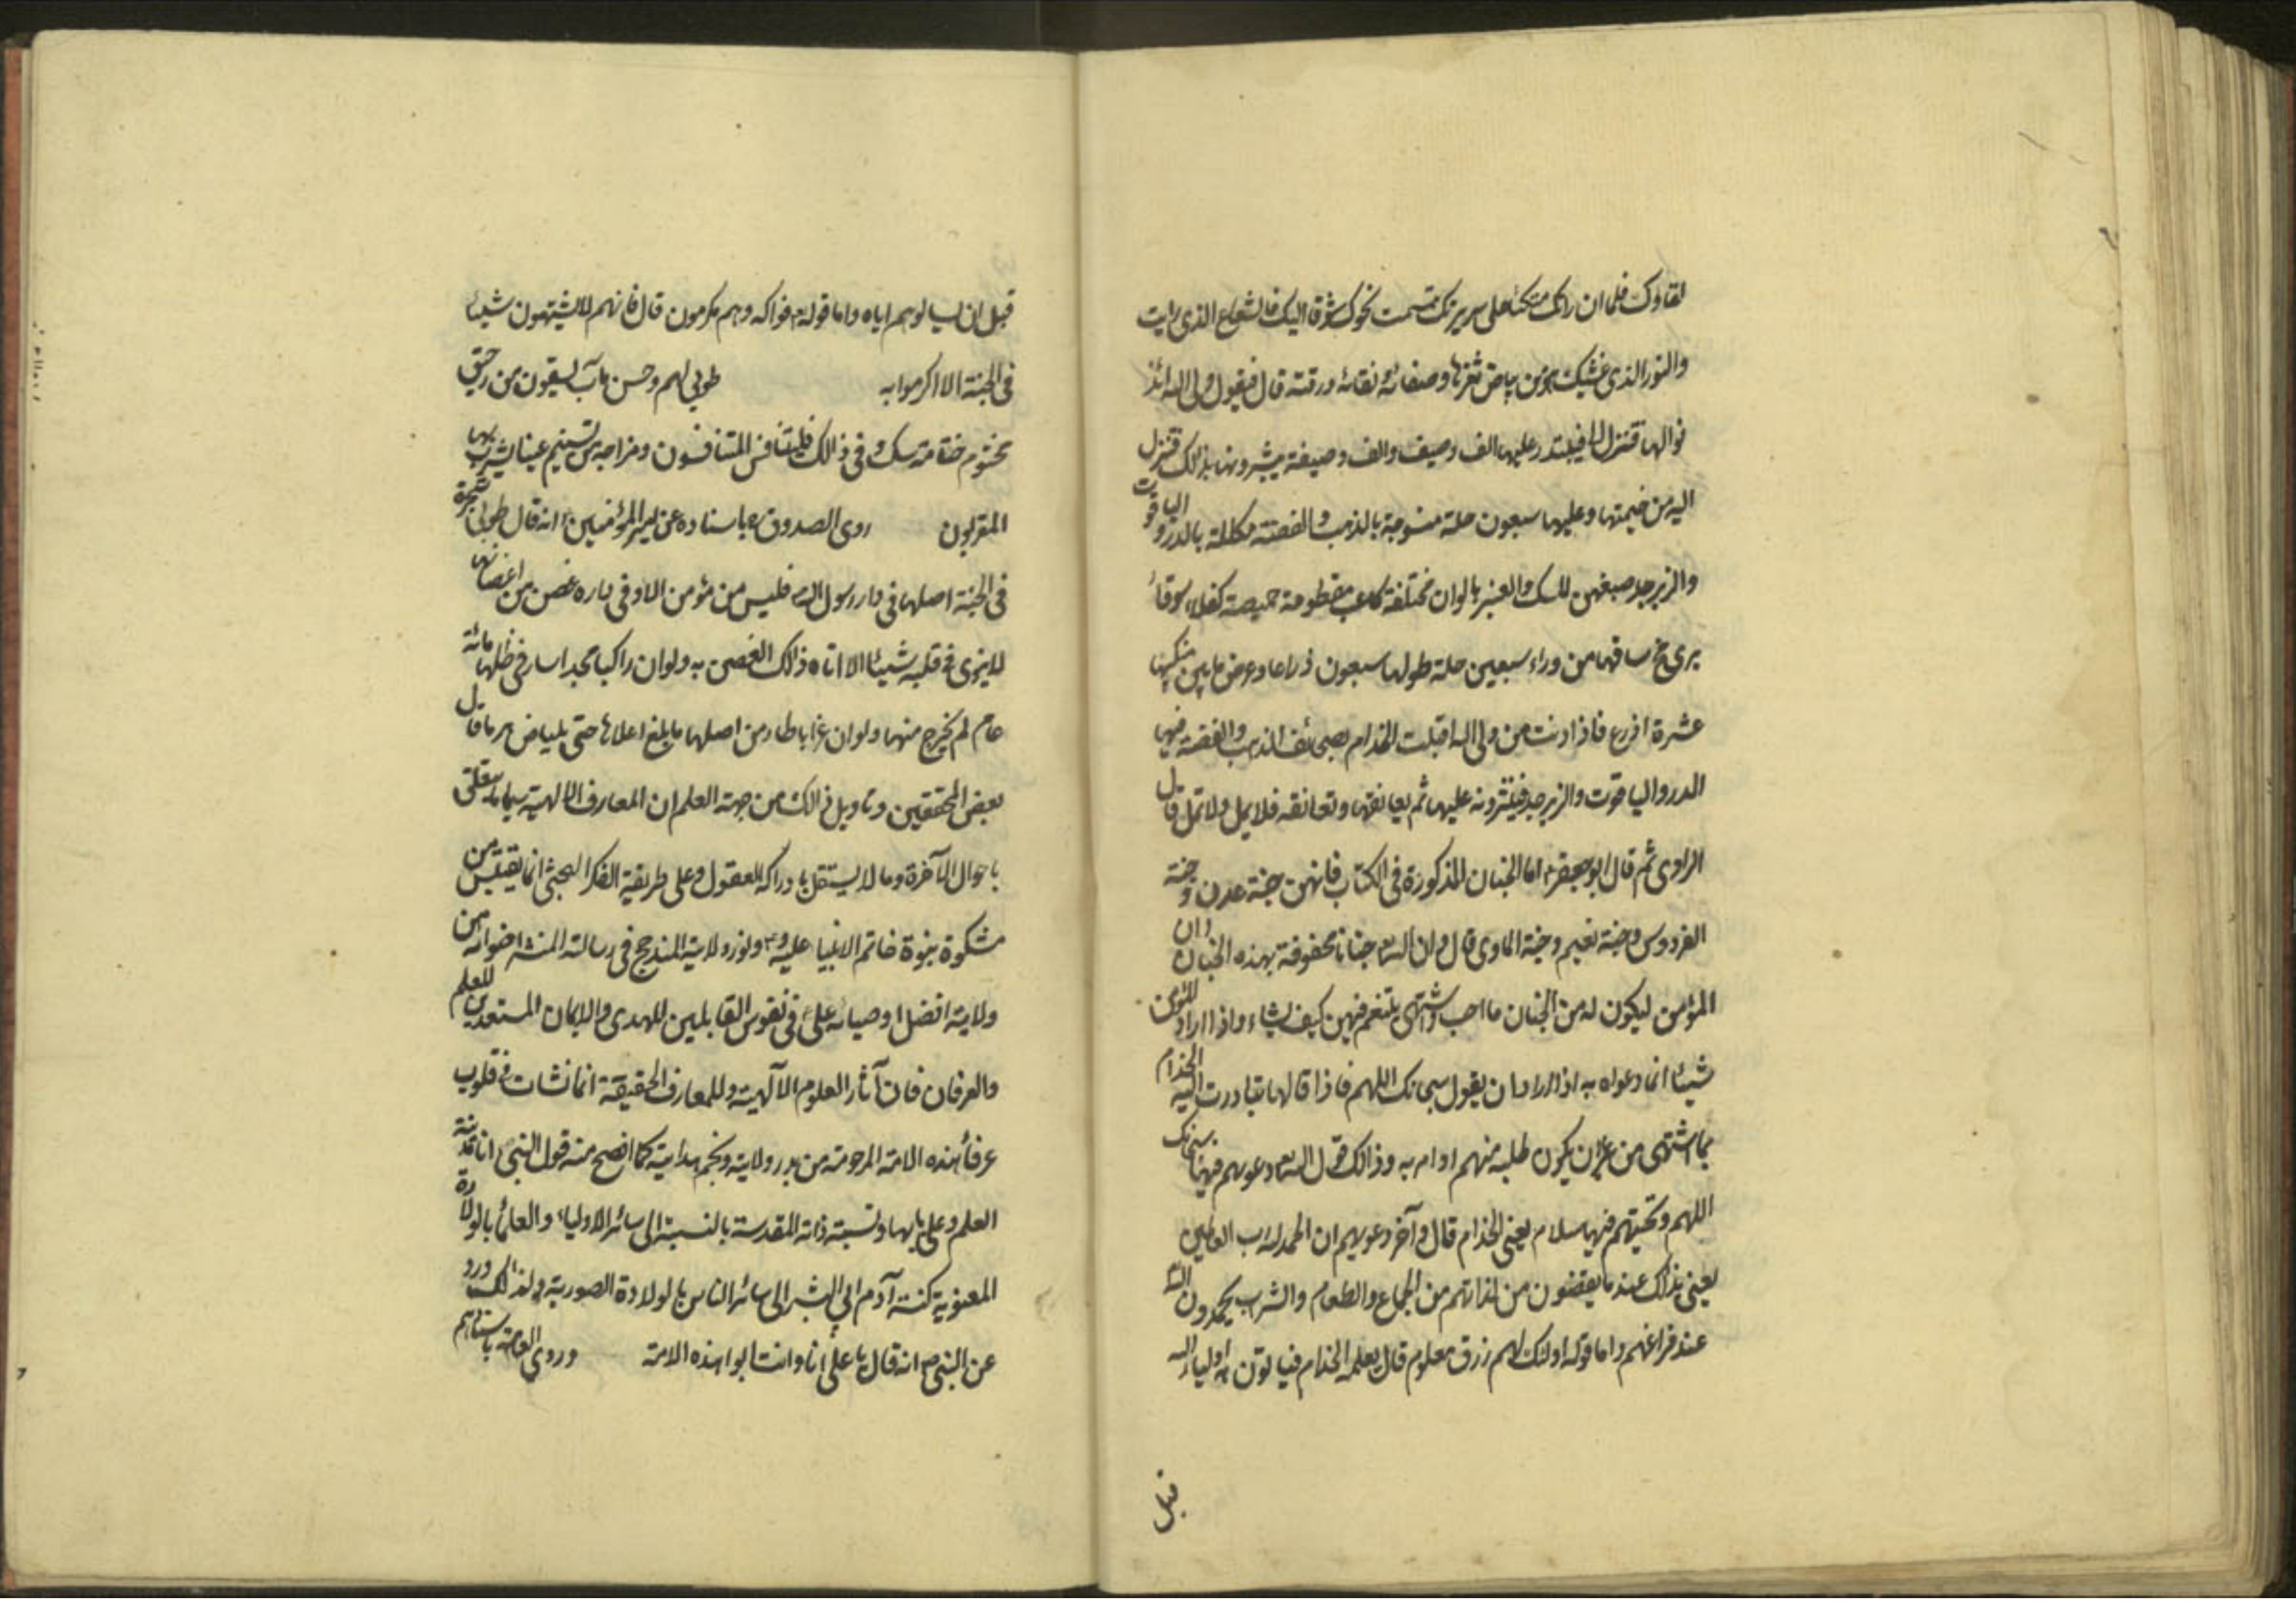 لقاؤك فلما ان راتك متكئا على سريرك تبسمت نحوك شوقا اليك فالشعاع الذى رايت
والنور الذى غشيك هو من بياض ثغرها وصفائه ونقائه ورقته قال فيقول ولى الله ائذ
نوا لها فتنزل الى فيبتدر عليها الف وصيف والف وصيفة يبشرونها بذالك فتنزل
اليه من خيمتها وعليها سبعون حلة منسوجة بالذهب والفضة مكللة بالدر والياقوت
والزبرجد صبغهن المسك والعنبر بالوان مختلفة كاعب مقطومة خميصة كفلاء سوقاء
يرى مخ ساقها من وراء سبعين حلة طولها سبعون ذراعا وعرض ما بين منكبيها
عشرة اذرع فاذا دنت من ولى الله اقبلت الخدام بصحائف الذهب والفضة فيها
الدر والياقوت والزبرجد فينثرونه عليها ثم يعانقها وتعانقه فلا يمل ولا تمل قال
الراوى ثم قال ابو جعفر اما الجنان المذكورة فى الكتاب فانهن جنة عدن وجنة
الفردوس وجنة نعيم وجنة الماوى قال وان لله جنانا محفوفة بهذه الجنان وان
المؤمن ليكون له من الجنان ما احب واشتهى يتنعم فيهن كيف يشاء واذا اراد المؤمن
شيئا انما دعواه به اذا اراد ان يقول سبحانك اللهم فاذا قالها تبادرت اليه الخدام
بما اشتهى من غير ان يكون طلبه منهم او امر به وذالك قول الله دعويهم فيها سبحانك
اللهم وتحيتهم فيها سلام يعنى الخدام قال وآخر دعويهم ان الحمد لله رب العالمين
يعنى بذالك عند ما يقضون من لذاتهم من الجماع والطعام والشراب يحمدون الله
عند فراغهم واما قوله اولئك لهم رزق معلوم قال يعلمه الخدام فياتون به اولياء الله
قبل
قبل ان يسالوهم اياه واما قوله فواكه وهم مكرمون قال فانهم لا يشتهون شيئا
فى الجنة الا اكرموا به طوبى لهم وحسن مآب يسقون من رحيق
مختوم ختامه مسك وفى ذالك فليتنافس المتنافسون ومزاجه من تسنيم عينا يشرب بها
المقربون روى الصدوق ره باسناده عن امير المؤمنين انه قال طوبى شجرة
فى الجنة اصلها فى دار رسول الله فليس من مؤمن الا وفى داره غصن من اغصانها
لا ينوى فى قلبه شيئا الا اتاه ذالك الغصن به ولو ان راكبا مجدا سار فى ظلها مائة
عام لم يخرج منها ولو ان غرابا طار من اصلها ما بلغ اعلاها حتى يبياض هرما قال
بعض المحققين وتاويل ذالك من جهة العلم ان المعارف الالهية سيما ما يتعلق
باحوال الآخرة وما لا يستقل بادراكه العقول وعلى طريقة الفكر البحثى انما يقتبس من
مشكوة نبوة خاتم الانبيا عليه وآله ونور ولاية المندمج فى رسالة المنشر اضوائه من
ولاية افضل اوصيائه على فى نفوس القابلين للهدى والايمان المستعدين للعلم
والعرفان فان آثار العلوم الآلهية والمعارف الحقيقة انما نشات فى قلوب
عرفاء هذه الامة المرحومة من بدر ولايته ونجم هدايته كما افصح منه قول النبى انا مدينة
العلم وعلى بابها ونسبة ذاته المقدسة بالنسبة الى سائر الاولياء والعلماء بالولادة
المعنوية كنسبة آدم ابى البشر الى سائر الناس بالولادة الصورية ولذالك ورد
عن النبى ص انه قال يا على انا وانت ابوا هذه الامة وروى العامة باسنادهم